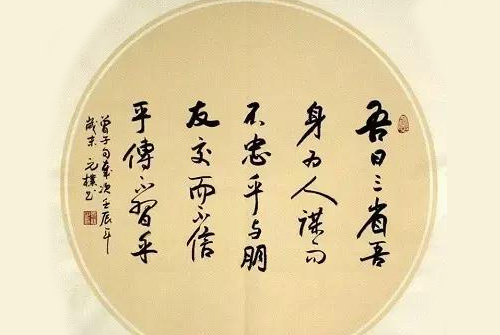 吾日三省吾
身为人谋而
不忠乎与朋
友交而不信
乎传不习乎
曾子句岁次壬辰年
岁末元朴书